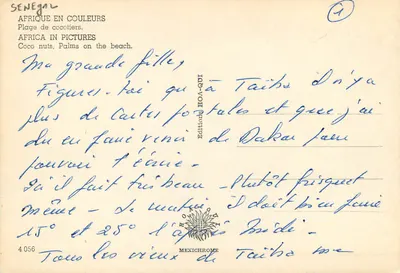 SENEGAL
1
AFRIQUE EN COULEURS
Plage de cocotiers.
AFRICA IN PICTURES
Coco nuts. Palms on the beach.
Ma grande fille,
Figures-toi qu'à Taïba il n'y a
plus de cartes postales et que j'ai
dû en faire venir de Dakar pour
pouvoir t'écrire -
Ici il fait très beau - Plutôt frisquet
même - Le matin, il doit bien faire
15° et 25° l'après midi -
Tous les vieux de Taïba me
Editions
IRIS-VOIR
MEXICHROME
4.056